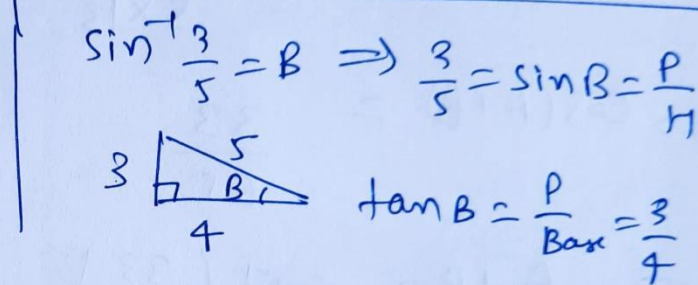 sin⁻¹ 3/5 = B ⇒ 3/5 = sin B = P/H
3 5 B 4
tan B = P/Base = 3/4